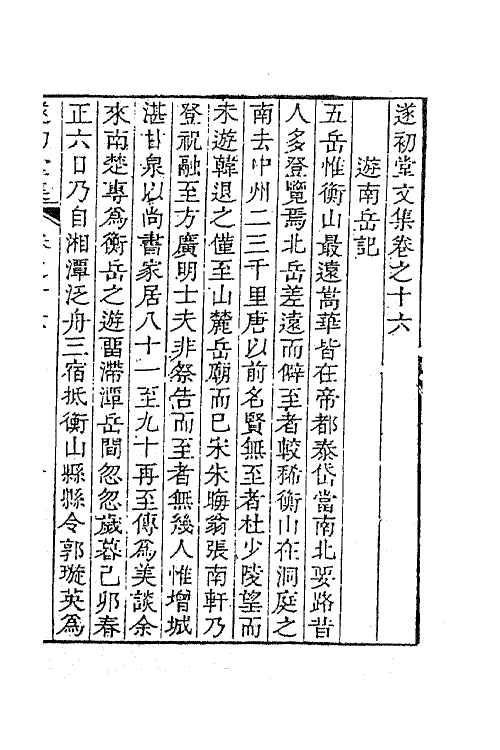 遂初堂文集卷之十六
遊南岳記
五岳惟衡山最遠嵩華皆在帝都泰岱當南北要路昔
人多登覽焉北岳差遠而僻至者較稀衡山在洞庭之
南去中州二三千里唐以前名賢無至者杜少陵望而
未遊韓退之僅至山麓岳廟而已宋朱晦翁張南軒乃
登祝融至方廣明士夫非祭告而至者無幾人惟增城
湛甘泉以尚書家居八十一至九十再至傳爲美談余
來南楚專爲衡岳之遊畱滯潭岳間忽忽歲暮己卯春
正六日乃自湘潭泛舟三宿抵衡山縣縣令郭璇英爲